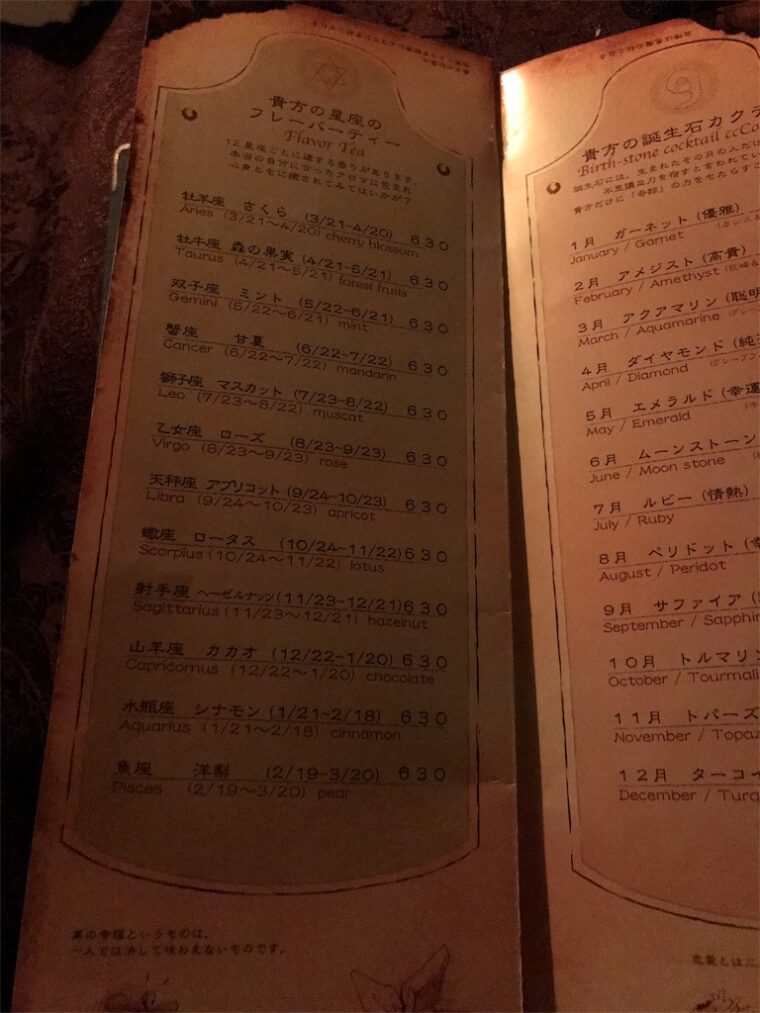 貴方の星座の
フレーバーティー
Flavor Tea
12星座ごとに適する香りがあります。
本当の自分に合ったアロマに包まれ
心身ともに癒されてみてはいかが?
牡羊座 さくら (3/21~4/20) 630
Aries (3/21～4/20) cherry blossom
牡牛座 森の果実 (4/21~5/21) 630
Taurus (4/21～5/21) forest fruits
双子座 ミント (5/22~6/21) 630
Gemini (5/22～6/21) mint
蟹座 甘夏 (6/22~7/22) 630
Cancer (6/22～7/22) mandarin
獅子座 マスカット (7/23~8/22) 630
Leo (7/23～8/22) muscat
乙女座 ローズ (8/23~9/23) 630
Virgo (8/23～9/23) rose
天秤座 アプリコット (9/24~10/23) 630
Libra (9/24～10/23) apricot
蠍座 ロータス (10/24~11/22) 630
Scorpius (10/24～11/22) lotus
射手座 ヘーゼルナッツ (11/23~12/21) 630
Sagittarius (11/23～12/21) hazelnut
山羊座 カカオ (12/22~1/20) 630
Capricornus (12/22～1/20) chocolate
水瓶座 シナモン (1/21~2/18) 630
Aquarius (1/21～2/18) cinnamon
魚座 洋梨 (2/19~3/20) 630
Pisces (2/19～3/20) pear
真の幸福というものは、
一人では決して味わえないものです。
貴方の誕生石カクテ
Birth-stone cocktail ccCo
誕生石には、生まれたその月の人だけ
不思議な力を宿すと言われてい
貴方だけに「奇跡」の力をもたらすこ
1月 ガーネット (優雅)
January / Garnet
2月 アメジスト (高貴)
February / Amethyst
3月 アクアマリン (聡明
March / Aquamarine
4月 ダイヤモンド (純
April / Diamond
5月 エメラルド (幸運
May / Emerald
6月 ムーンストーン
June / Moon stone
7月 ルビー (情熱)
July / Ruby
8月 ペリドット (幸
August / Peridot
9月 サファイア (
September / Sapphir
10月 トルマリン
October / Tourmali
11月 トパーズ
November / Topaz
12月 ターコイ
December / Turq
恋愛とは二